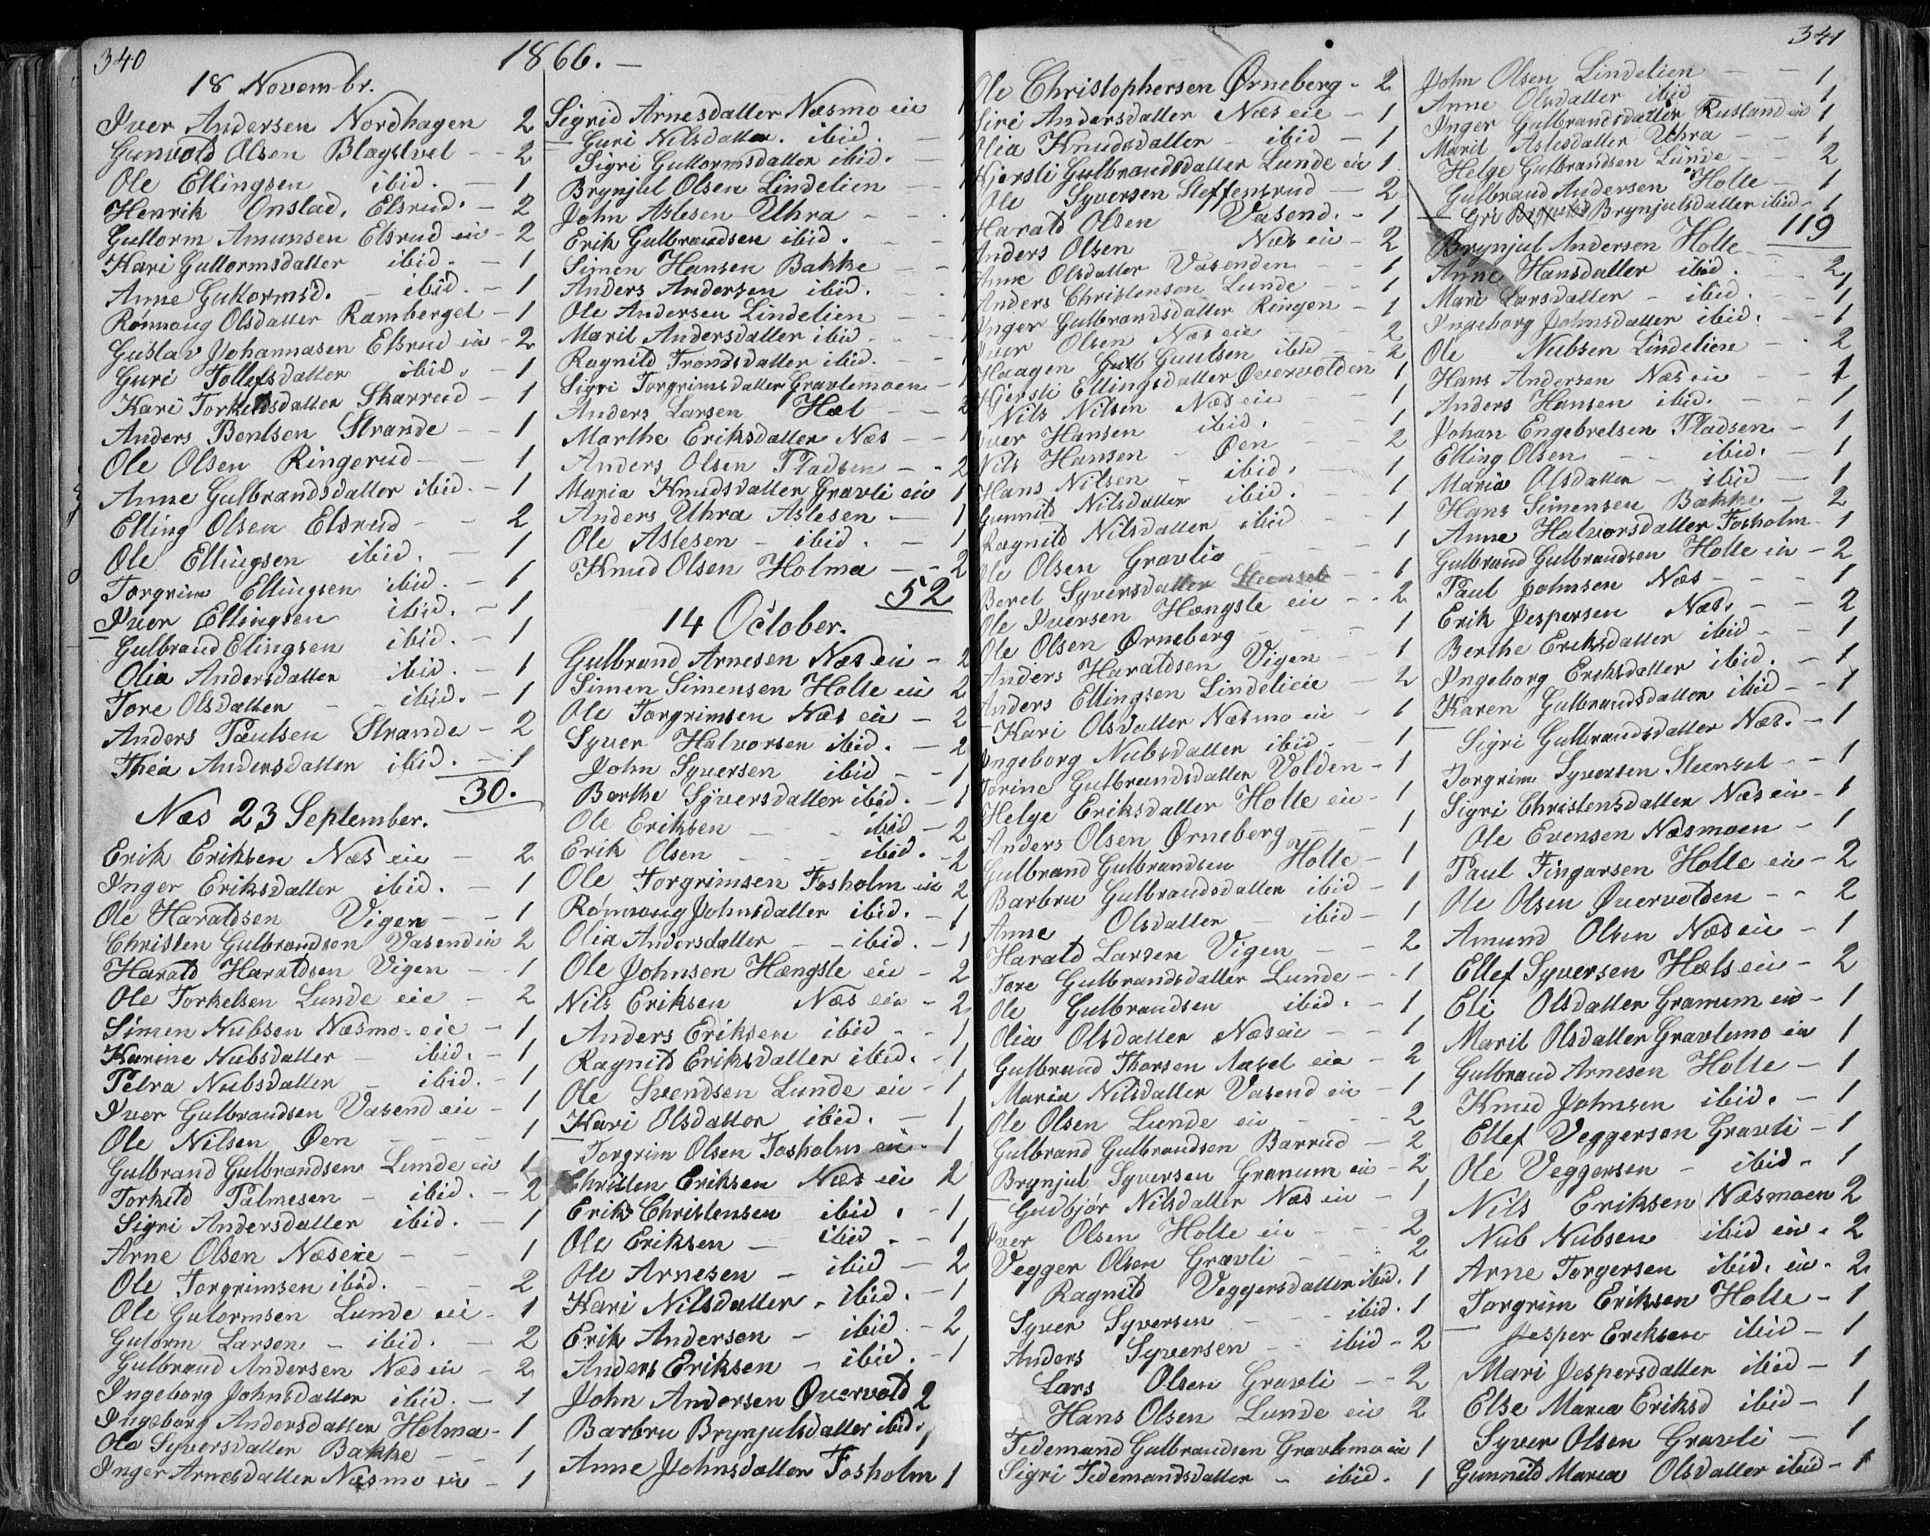 340
1866.
18 Novembr.
Iver Andersen Nordhagen 2
Gunvold Olsen Blagstvet - 2
Ole Ellingsen ibid. - 1
Henrik Onstad, Elsrud. - 2
Guttorm Amunsen Elsrud eie - 2
Kari Guttormsdatter ibid. - 1
Anne Guttormsd. - ibid. - 1
Rönnoug Olsdatter Ramberget - 1
Gustav Johannasen Elsrud eie - 2
Guri Tollefsdatter ibid. - 1
Kari Torkeldsdatter Skarrud - 1
Anders Bentsen Strande - 1
Ole Olsen Ringerud - 1
Anne Gulbrandsdatter ibid. - 1
Elling Olsen Elsrud - 2
Ole Ellingsen ibid. - 1
Torgrim Ellingsen ibid. - 1
Iver Ellingsen ibid. - 1
Gulbrand Elingsen ibid. - 1
Olia Andersdatter ibid. - 1
Tore Olsdatter - ibid. - 1
Anders Paulsen Strande - 2
Thea Andersdatter ibid. - 1
30.
Næs 23 September.
Erik Eriksen Næs eie - 2
Inger Eriksdatter ibid. - 1
Ole Haraldsen Vigen - 1
Christen Gulbrandsen Vasend eie 2
Harald Haraldsen Vigen - 1
Ole Torkelsen Lunde eie - 2
Simen Nubsen Næsmo eie - 1
Karine Nubsdatter - ibid. - 1
Petra Nubsdatter - ibid. - 1
Iver Gulbrandsen Vasend eie - 1
Ole Nilsen Øen - - - 1
Gulbrand Gulbrandsen Lunde eie 1
Torkild Palmesen - ibid. - 2
Sigri Andersdatter ibid. - 1
Arne Olsen Næs eie - - 1
Ole Torgrimsen ibid. - 2
Ole Gutormsen Lunde eie - 1
Gutorm Larsen - ibid. 2
Gulbrand Andersen Næs eie - 2
Ingeborg Johnsdatter ibid. - 1
Ingeborg Andersdatter Holma - 1
Ole Syversdatter Bakke - - 1
Inger Arnesdatter Næsmo eie - 1
Sigrid Arnesdatter Næsmo eie 1
Guri Nilsdatter ibid. 1
Sigri Guttormsdatter ibid. - 1
Brynjul Olsen Lindelien - 1
John Aslesen Uhra - - 1
Erik Gulbrandsen ibid. - 1
Simen Hansen Bakke - - 1
Anders Andersen ibid. 1
Ole Andersen Lindelien - 1
Marit Andersdatter ibid - 1
Ragnild Trondsdatter ibid. - 1
Sigri Torgrimsdatter Gravlemoen - 1
Anders Larsen Hæl - - 2
Marthe Eriksdatter Næs - - 1
Anders Olsen Pladsen - - 2
Maria Knudsdatter Gravli eie 1
Anders Uhra Aslesen - 1
Ole Aslesen - ibid. - 1
Knud Olsen Holma - - 2
52
14 October.
Gulbrand Arnesen Næs eie - 2
Simen Simensen Holte eie 2
Ole Torgrimsen Næs eie - 2
Syver Halvorsen ibid. - 2
John Syversen ibid - - 1
Berthe Syversdatter ibid. - 1
Ole Eriksen - - ibid - 2
Erik Olsen - - ibid. - 2
Ole Torgrimsen Fosholm eie 2
Rönnoug Johnsdatter ibid. - 1
Olia Andersdatter - - ibid. - 1
Ole Johnsen Hængsle eie - 2
Nils Eriksen Næs eie - 2
Anders Eriksen ibid - - 1
Ragnild Eriksdatter ibid. - 1
Ole Svendsen Lunde eie - 1
Kari Olsdatter ibid. - 1
Torgrim Olsen Fosholm eie - 1
Christen Eriksen Næs eie 2
Erik Christensen ibid. - 1
Ole Eriksen - ibid. - 1
Ole Arnesen - ibid - 2
Kari Nilsdatter - ibid. - 1
Erik Andersen - ibid - 2
Anders Eriksen - ibid. - 1
John Andersen Øvervold 2
Barbru Brynjulsdatter ibid. 1
Anne Johnsdatter Fosholm 1
341
Ole Christophersen Ørneberg - 2
Siri Andersdatter Næs eie - 1
Olia Knudsdatter - ibid - 1
Kjersti Gulbrandsdatter Lunde eie 1
Ole Syversen Steffensrud - 2
Harald Olsen Vasend. - 1
Anders Olsen - Næs eie - 2
Anne Olsdatter Vasenden - - 1
Anders Christenson Lunde - 1
Inger Gulbrandsdatter Ringen - 1
Iver Olsen Næs eie - - 2
Haagen Gulb Guulsen ibid - - 2
Kjersti Ellingsdatter Øvervolden 1
Nils Nilsen Næs eie - - 1
Iver Hansen ibid. - - 1
Nils Hansen - Øen - - 2
Hans Nilsen - ibid. - 1
Gunnild Nilsdatter ibid. - 1
Ragnild Nilsdatter ibid - - 1
Ole Olsen Gravlio - - - 1
Beret Syversdatter Steenset - - 1
Ole Iversen Hængsle eie - - 2
Ole Olsen Ørneberg - - 1
Anders Haraldsen Vigen - - 1
Anders Ellingsen Lindelien - 2
Kari Olsdatter Næsmo eie - 1
Ingeborg Nubsdatter ibid. - 1
Torine Gulbrandsdatter Volden - 1
Helge Eriksdatter Holte eie - 1
Anders Olsen Ørneberg - - 1
Gulbrand Gulbrandsen Holte - 1
Barbru Gulbrandsdatter ibid - 1
Anne Olsdatter - ibid - 1
Harald Larsen Vigen - - 2
Tore Gulbrandsdatter Lunde - - 1
Ole Gulbrandsen ibid. - 1
Olia Olsdatter Næs eie - - 1
Gulbrand Thorsen Aasel eie - 2
Maria Nilsdatter Vasend eie - 1
Ole Olsen Lunde eie - - - 2
Gulbrand Gulbrandsen Barrud - 2
Brynjul Syversen Granum eie - 2
Gudbjör Nilsdatter Næs eie - 1
Iver Olsen Holte eie - - - 2
Vegger Olsen Gravli - - - 2
Ragnild Veggersdatter ibid. 1
Syver Syversen - - - ibid. 1
Anders Syversen - - ibid - 2
Lars Olsen Gravli - - 2
Hans Olsen Lunde eie 2
Tidemand Gulbrandsen Gravlemo eie 1
Sigri Tidemandsdatter - ibid. 1
John Olsen Lindelien - - 1
Anne Olsdatter ibid - - 1
Inger Gulbrandsdatter Rustand eie 1
Marit Aslesdatter Uhra - - 1
Helge Gulbrandsen Lunde - - 2
Gulbrand Andersen Holte - 1
Gri Brynjulsdatter ibid - 1
119
Brynjul Andersen Holte
Anne Hansdatter ibid. - - 2
Mari Larsdatter - ibid. - 1
Ingeborg Johnsdatter ibid. - 1
Ole Nubsen Lindelien - - 2
Hans Andersen Næs eie - - 1
Anders Hansen ibid. - - 1
Johan Engebretsen Pladsen - 1
Elling Olsen - - ibid. - 1
Maria Olsdatter - ibid - 1
Hans Simensen Bakke - 2
Anne Halvorsdatter Fosholm - 1
Gulbrand Gulbrandsen Holte eie - 2
Paul Johnsen Næs - - - 1
Erik Jespersen Næs. - - 2
Berthe Eriksdatter ibid - - 1
Ingeborg Eriksdatter ibid. - 1
Karen Gulbrandsdatter ibid - - 1
Sigri Gulbrandsdatter Næs. - 1
Torgrim Syversen Steenset - - 1
Sigri Christensdatter Næs eie - 1
Ole Evensen Næsmoen - 1
Paul Fingarsen Holte eie - 2
Ole Olsen Øvervolden - - 2
Amund Olsen Næs eie - 1
Ellef Syversen Hæls eie - 2
Eli Olsdatter Granum eie - 1
Marit Olsdatter Gravlemo eie 1
Gulbrand Arnesen Holte - 1
Knud Johnsen ibid. - 1
Ellef Veggersen Gravli - 1
Ole Veggersen - ibid - 1
Nils Eriksen Næsmoen 2
Nub Nubsen ibid eie - 2
Arne Torgersen ibid. eie - 2
Torgrim Eriksen Holte - 1
Jesper Eriksen ibid - 1
Mari Jespersdatter ibid - 1
Else Maria Eriksd ibid - 1
Syver Olsen Gravli - 1
Gunnild Maria Olsdatter ibid - 1